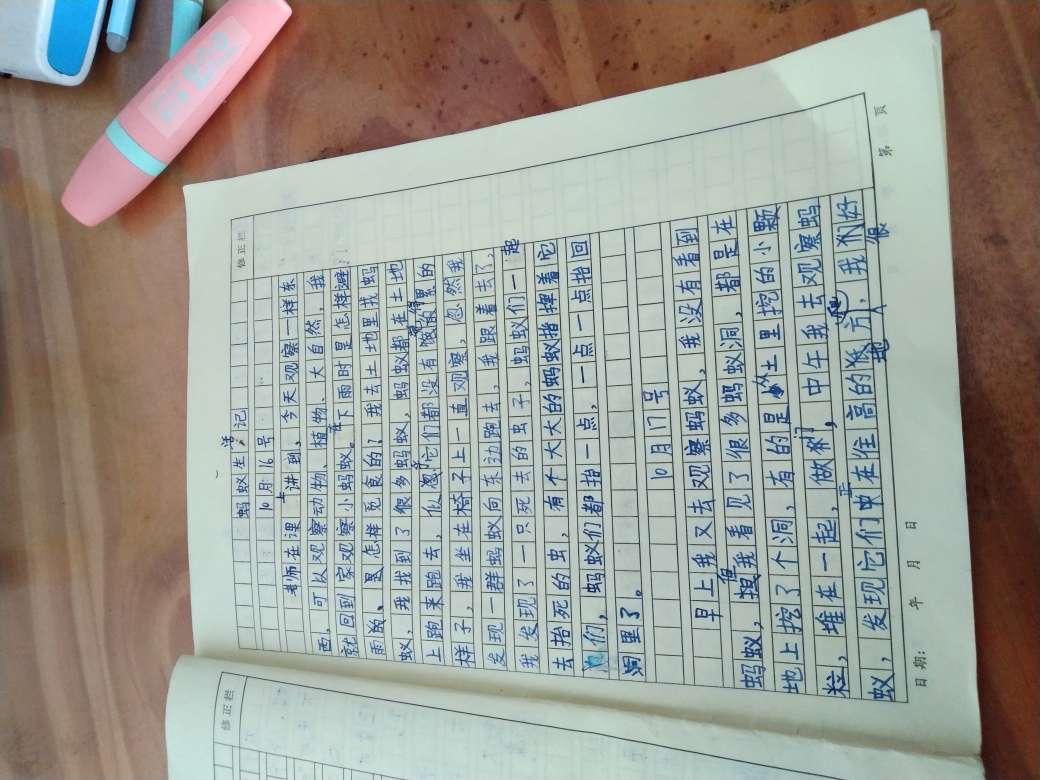 修正栏
蚂蚁生活记
10月16号
老师在课上讲到，今天观察一样东
西，可以观察动物、植物、大自然，我
就回到家观察小蚂蚁。在下雨时是怎样避
雨的、是怎样觅食的？我去土地里找蚂
蚁，我找到了很多蚂蚁，蚂蚁都在土地
上跑来跑去，它们都没有累的
样子，我坐在椅子上一直观察，忽然我
发现一群蚂蚁向东边跑去，我跟着去了，
我发现了一只死去的虫子，蚂蚁们一起
去抬死的虫，有个大大的蚂蚁指挥着它
们，蚂蚁们都抬一点，一点一点抬回
洞里了。
10月17号
早上我又去观察蚂蚁，我没有看到
蚂蚁，但我看见了很多蚂蚁洞，都是在
地上挖了个洞，有的是从土里挖的小颗
粒，堆在一起，做成门，中午我去观察蚂
蚁，发现它们正在往高的地方爬，我们好很
日期： 年 月 日 第 页
修正栏